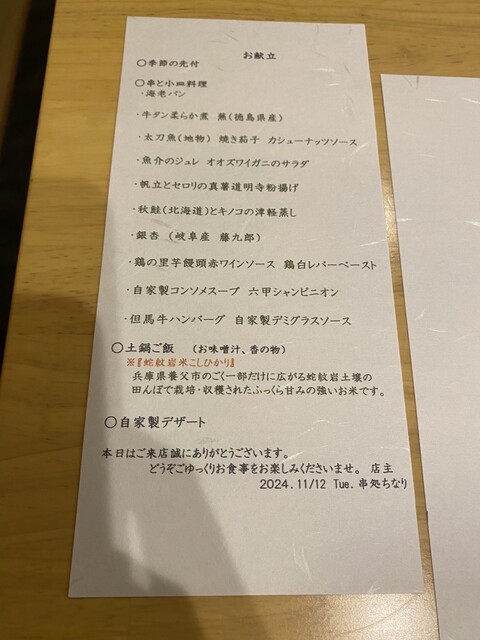 お献立
〇季節の先付
〇串と小皿料理
・海老パン
・牛タン柔らか煮 蕪(徳島県産)
・太刀魚(地物) 焼き茄子 カシューナッツソース
・魚介のジュレ オオズワイガニのサラダ
・帆立とセロリの真薯道明寺粉揚げ
・秋鮭(北海道)とキノコの津軽蒸し
・銀杏 (岐阜産 藤九郎)
・鶏の里芋饅頭赤ワインソース 鶏白レバーペースト
・自家製コンソメスープ 六甲シャンピニオン
・但馬牛ハンバーグ 自家製デミグラスソース
〇土鍋ご飯 (お味噌汁、香の物)
※『蛇紋岩米こしひかり』
兵庫県養父市のごく一部だけに広がる蛇紋岩土壌の
田んぼで栽培・収穫されたふっくら甘みの強いお米です。
〇自家製デザート
本日はご来店誠にありがとうございます。
どうぞごゆっくりお食事をお楽しみくださいませ。 店主
2024.11/12 Tue. 串処ちなり